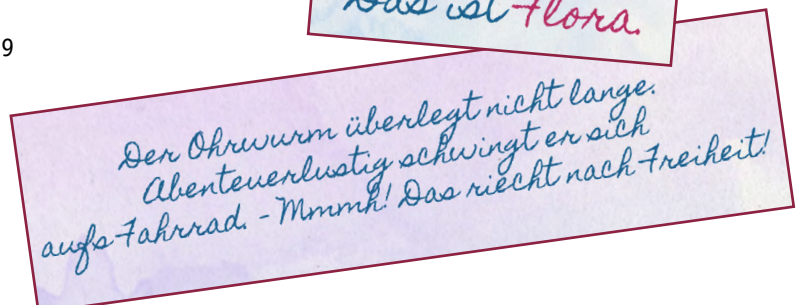 Das ist Flora.
9
Der Ohrwurm überlegt nicht lange.
Abenteuerlustig schwingt er sich
aufs Fahrrad. - Mmmh! Das riecht nach Freiheit!